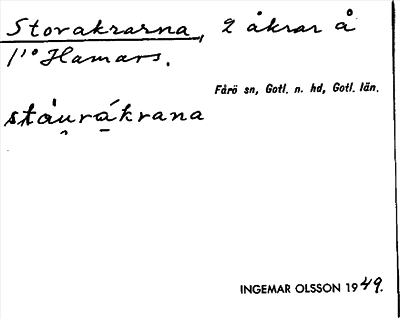 Storakrarna, 2 åkrar å
1/10 Hamars.
Fårö sn, Gotl. n. hd, Gotl. län.
stáu̯rákrana
INGEMAR OLSSON 1949.